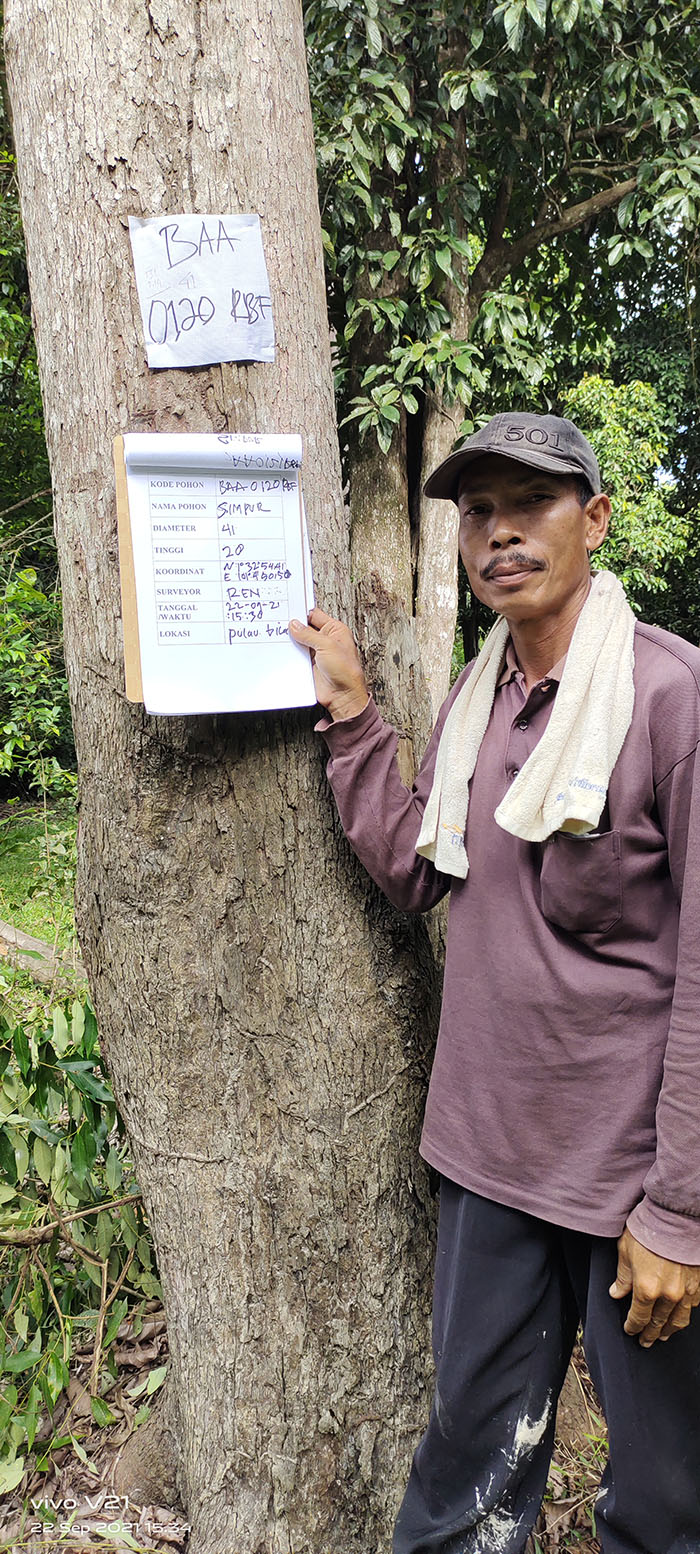 BAA
41
0120 RBF
KODE POHON BAA 0120 RBF
NAMA POHON SIMPUR
DIAMETER 41
TINGGI 20
KOORDINAT
SURVEYOR REN
TANGGAL /WAKTU 22-09-21 :15:30
LOKASI pulau
501
vivo V21
22 Sep 2021 15:34